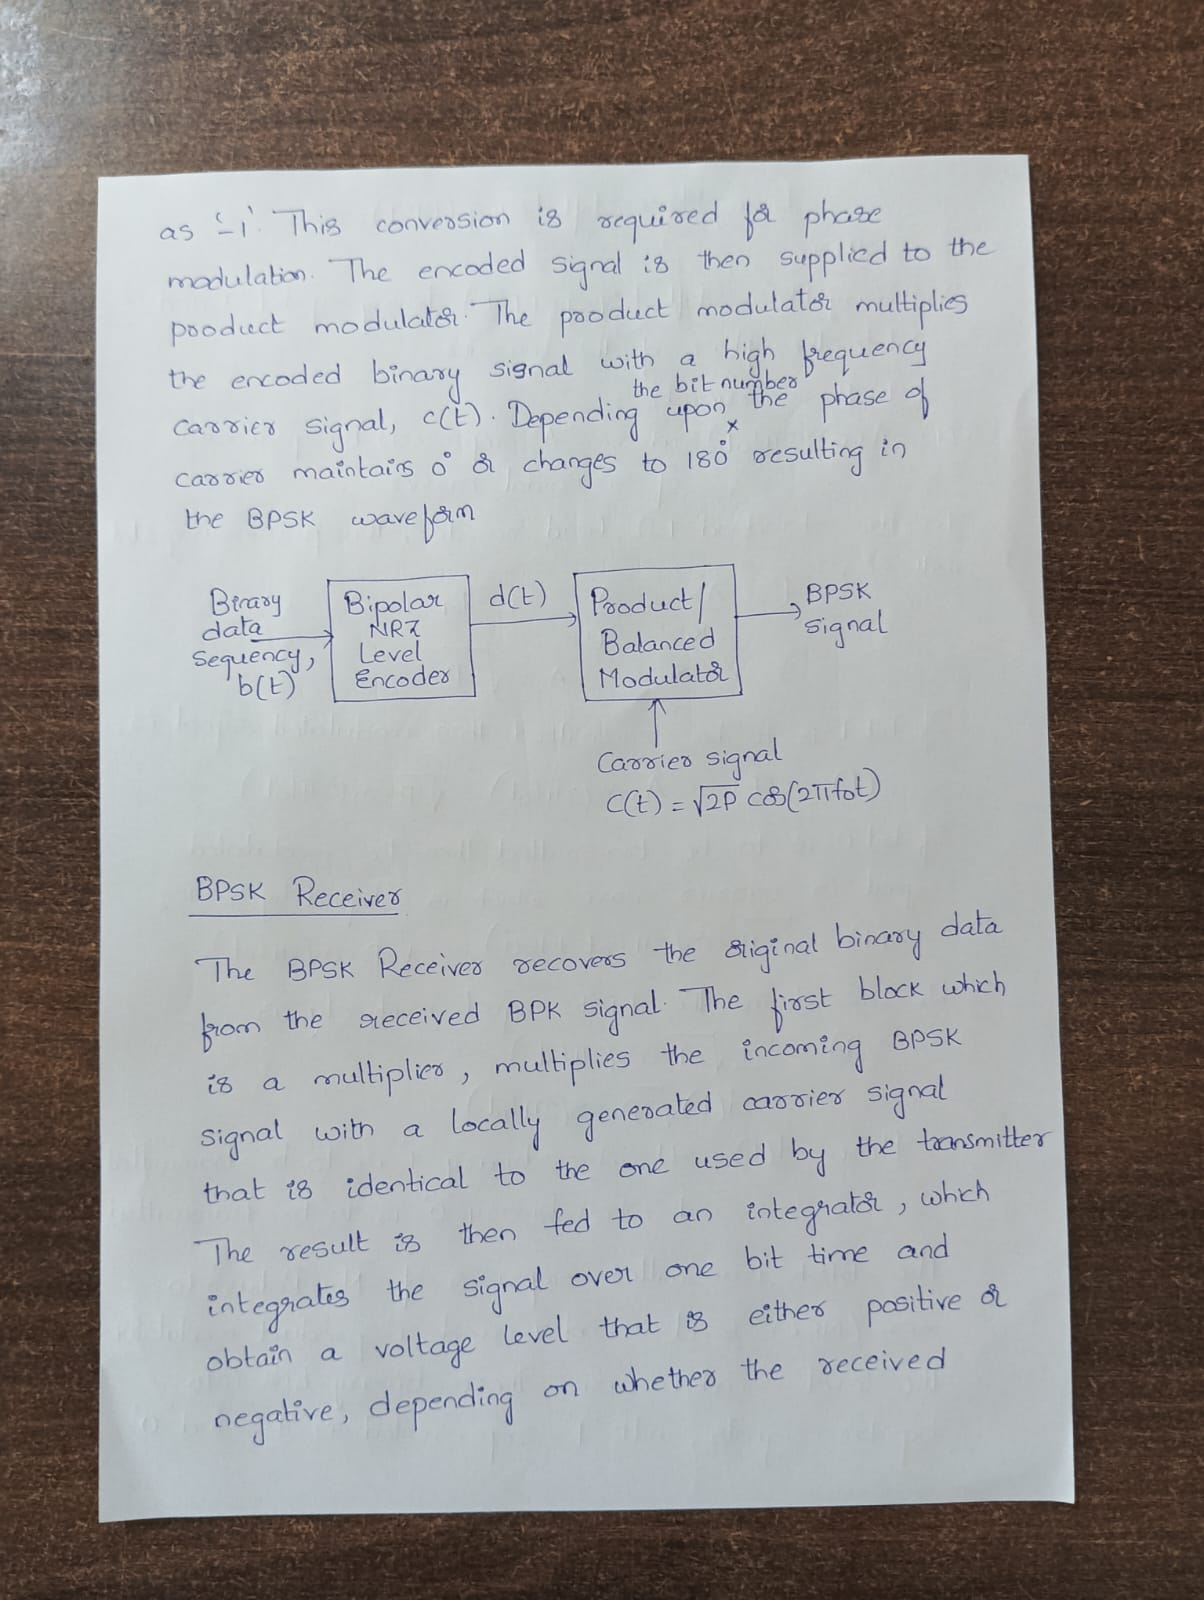 as '-1'. This conversion is required for phase
modulation. The encoded signal is then supplied to the
product modulator. The product modulator multiplies
the encoded binary signal with a high frequency
the bit number
carrier signal, c(t). Depending upon x the phase of
carrier maintains 0° or changes to 180° resulting in
the BPSK waveform
Binary
data
Sequency,
b(t)
Bipolar
NRZ
Level
Encoder
d(t)
Product/
Balanced
Modulator
BPSK
signal
Carrier signal
C(t) = √2P cos(2πfot)
BPSK Receiver
The BPSK Receiver recovers the original binary data
from the received BPK signal. The first block which
is a multiplier, multiplies the incoming BPSK
signal with a locally generated carrier signal
that is identical to the one used by the transmitter
The result is then fed to an integrator, which
integrates the signal over one bit time and
obtain a voltage level that is either positive or
negative, depending on whether the received